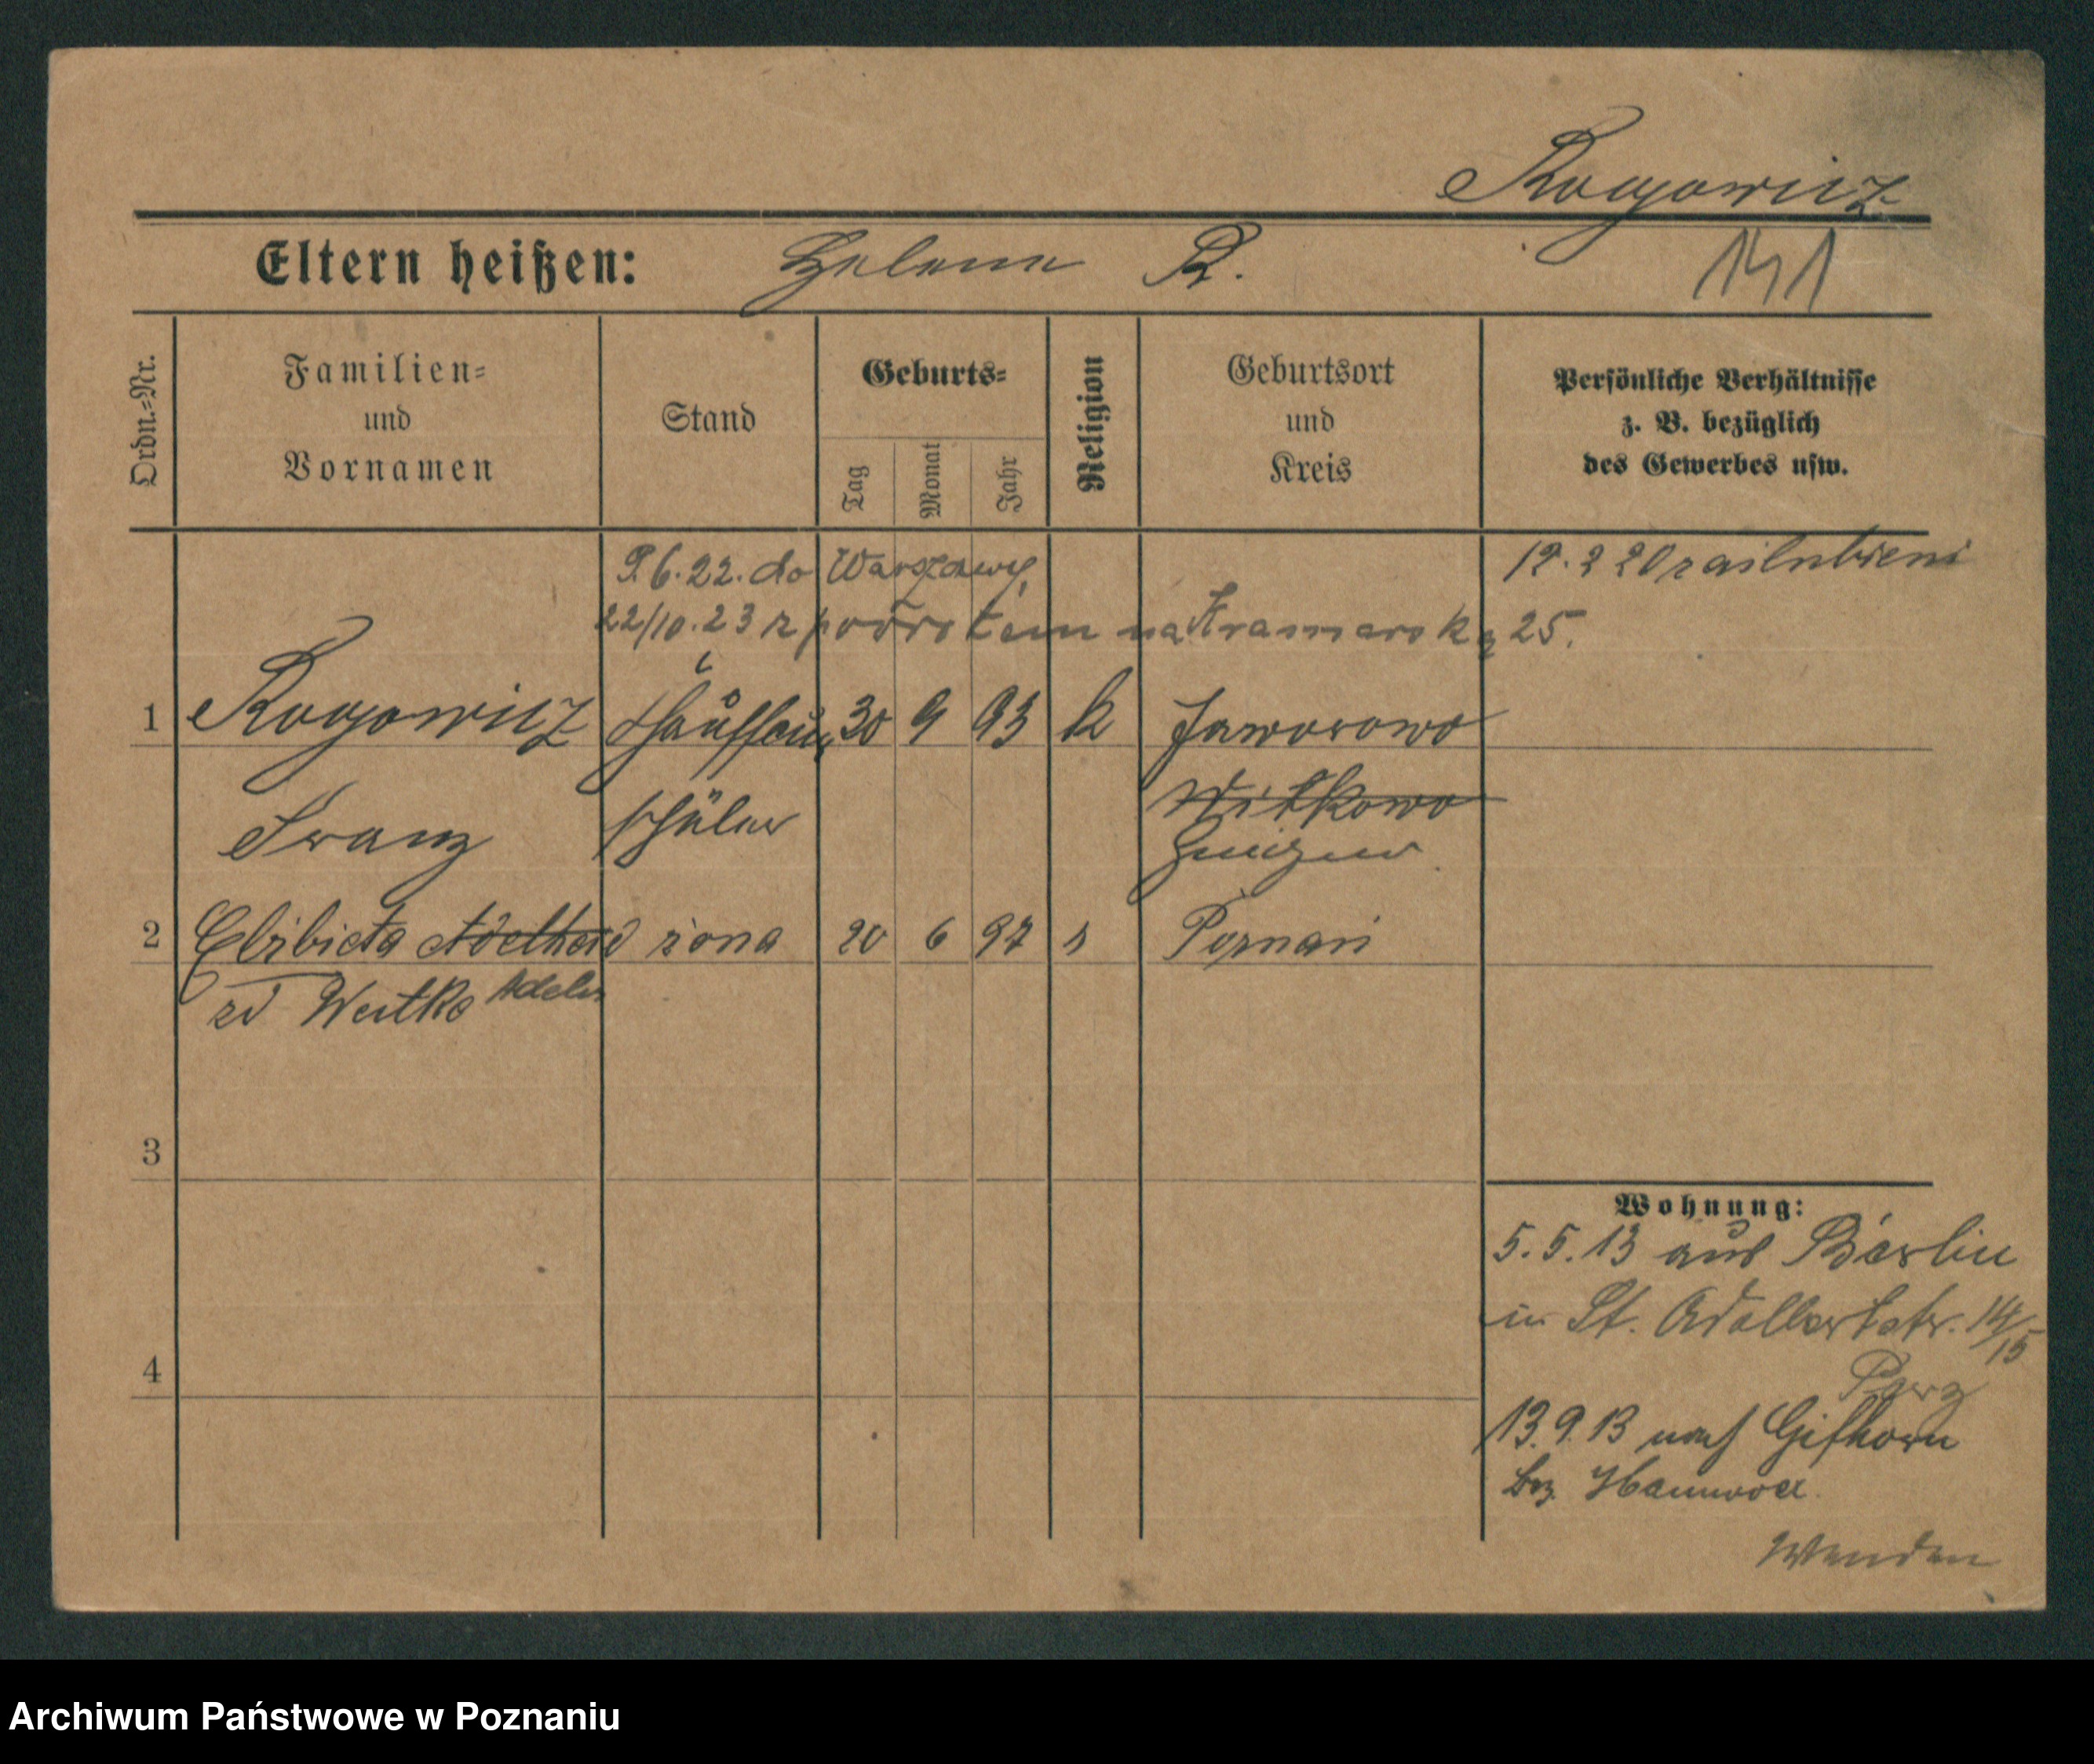 Rogowicz
Eltern heißen: Helene R. 141
Ordn.=Nr. Familien= und Vornamen Stand Geburts= Tag Monat Jahr Religion Geburtsort und Kreis Persönliche Verhältnisse z. B. bezüglich des Gewerbes usw.
9.6.22. do Warszawy
22/10.23 z powrotem na Kramarską 25.
1 Rogowicz 30 9 93 k Jaworowo
Franz schüler Witkowo
Gnesen
2 Elżbieta Adelheid żona 20 6 97 Poznań
zd Weitke
3
4
Wohnung:
5.5.13 aus Berlin
in St. Adalbertstr. 14/15
13.9.13 nach Gifhorn
bez. Hannover.
Wenden
Archiwum Państwowe w Poznaniu